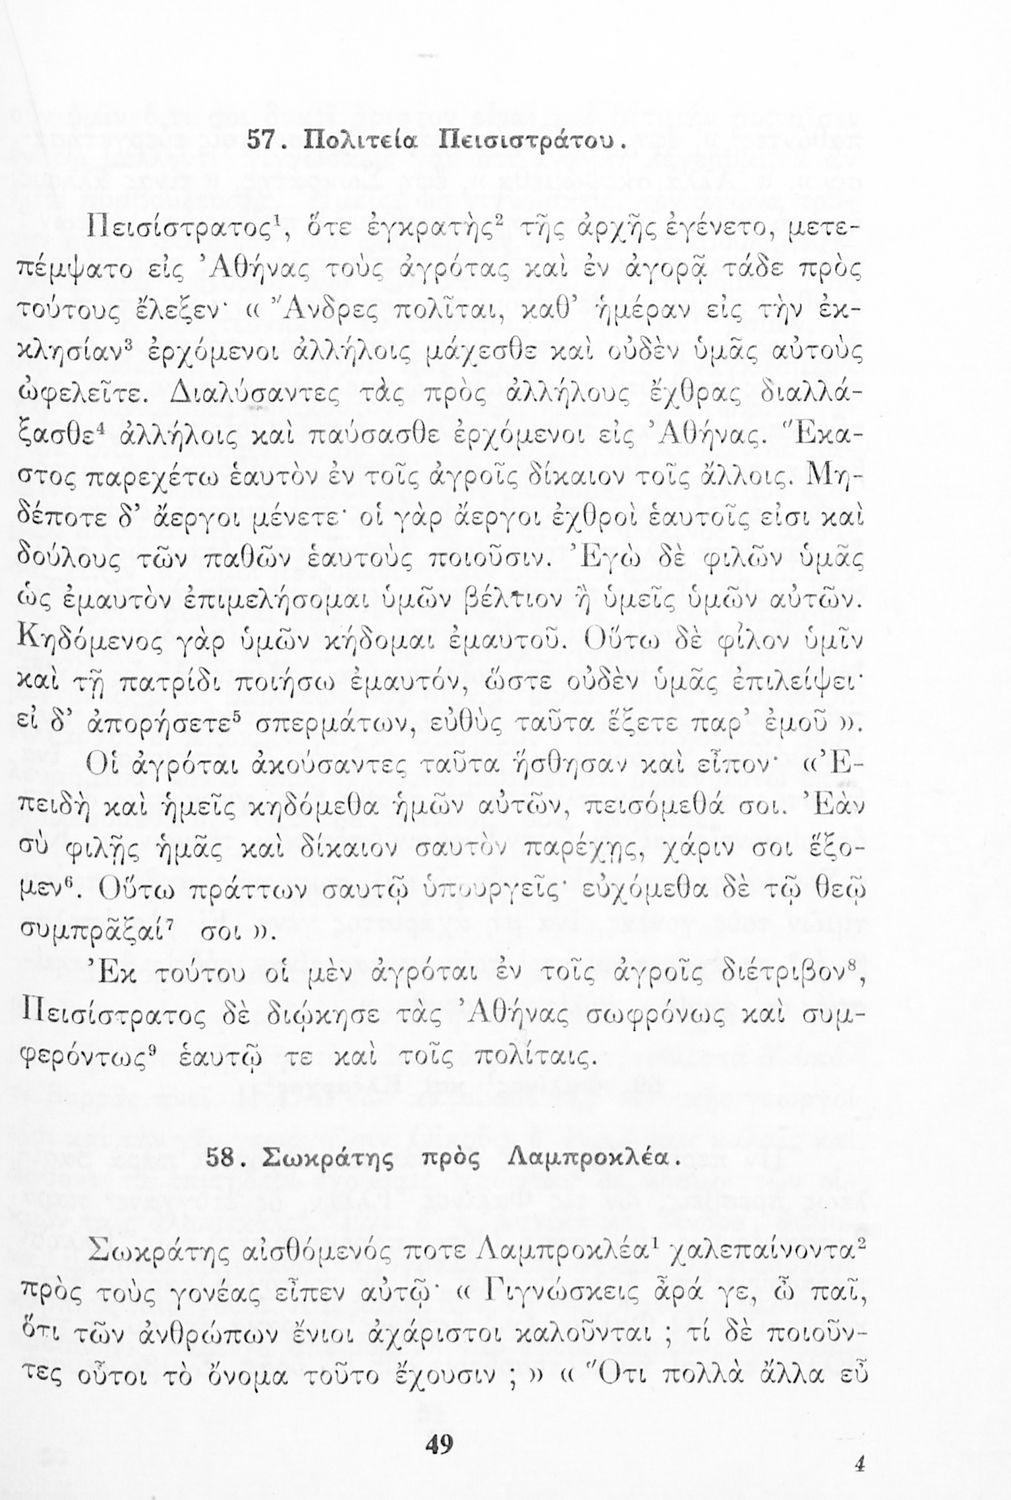 57. Πολιτεία Πεισιστράτου.
Πεισίστρατος¹, ὅτε ἐγκρατὴς² τῆς ἀρχῆς ἐγένετο, μετε-
πέμψατο εἰς Ἀθήνας τοὺς ἀγρότας καὶ ἐν ἀγορᾷ τάδε πρὸς
τούτους ἔλεξεν· « Ἄνδρες πολῖται, καθ’ ἡμέραν εἰς τὴν ἐκ-
κλησίαν³ ἐρχόμενοι ἀλλήλοις μάχεσθε καὶ οὐδὲν ὑμᾶς αὐτοὺς
ὠφελεῖτε. Διαλύσαντες τὰς πρὸς ἀλλήλους ἔχθρας διαλλά-
ξασθε⁴ ἀλλήλοις καὶ παύσασθε ἐρχόμενοι εἰς Ἀθήνας. Ἕκα-
στος παρεχέτω ἑαυτὸν ἐν τοῖς ἀγροῖς δίκαιον τοῖς ἄλλοις. Μη-
δέποτε δ’ ἄεργοι μένετε· οἱ γὰρ ἄεργοι ἐχθροὶ ἑαυτοῖς εἰσι καὶ
δούλους τῶν παθῶν ἑαυτοὺς ποιοῦσιν. Ἐγὼ δὲ φιλῶν ὑμᾶς
ὡς ἐμαυτὸν ἐπιμελήσομαι ὑμῶν βέλτιον ἢ ὑμεῖς ὑμῶν αὐτῶν.
Κηδόμενος γὰρ ὑμῶν κήδομαι ἐμαυτοῦ. Οὕτω δὲ φίλον ὑμῖν
καὶ τῇ πατρίδι ποιήσω ἐμαυτόν, ὥστε οὐδὲν ὑμᾶς ἐπιλείψει·
εἰ δ’ ἀπορήσετε⁵ σπερμάτων, εὐθὺς ταῦτα ἕξετε παρ’ ἐμοῦ ».
Οἱ ἀγρόται ἀκούσαντες ταῦτα ἥσθησαν καὶ εἶπον· «Ἐ-
πειδὴ καὶ ἡμεῖς κηδόμεθα ἡμῶν αὐτῶν, πεισόμεθά σοι. Ἐὰν
σὺ φιλῇς ἡμᾶς καὶ δίκαιον σαυτὸν παρέχῃς, χάριν σοι ἕξο-
μεν⁶. Οὕτω πράττων σαυτῷ ὑπουργεῖς· εὐχόμεθα δὲ τῷ θεῷ
συμπρᾶξαί⁷ σοι ».
Ἐκ τούτου οἱ μὲν ἀγρόται ἐν τοῖς ἀγροῖς διέτριβον⁸,
Πεισίστρατος δὲ διῴκησε τὰς Ἀθήνας σωφρόνως καὶ συμ-
φερόντως⁹ ἑαυτῷ τε καὶ τοῖς πολίταις.
58. Σωκράτης πρὸς Λαμπροκλέα.
Σωκράτης αἰσθόμενός ποτε Λαμπροκλέα¹ χαλεπαίνοντα²
πρὸς τοὺς γονέας εἶπεν αὐτῷ· « Γιγνώσκεις ἆρά γε, ὦ παῖ,
ὅτι τῶν ἀνθρώπων ἔνιοι ἀχάριστοι καλοῦνται ; τί δὲ ποιοῦν-
τες οὗτοι τὸ ὄνομα τοῦτο ἔχουσιν ; » « Ὅτι πολλὰ ἄλλα εὖ
49
4